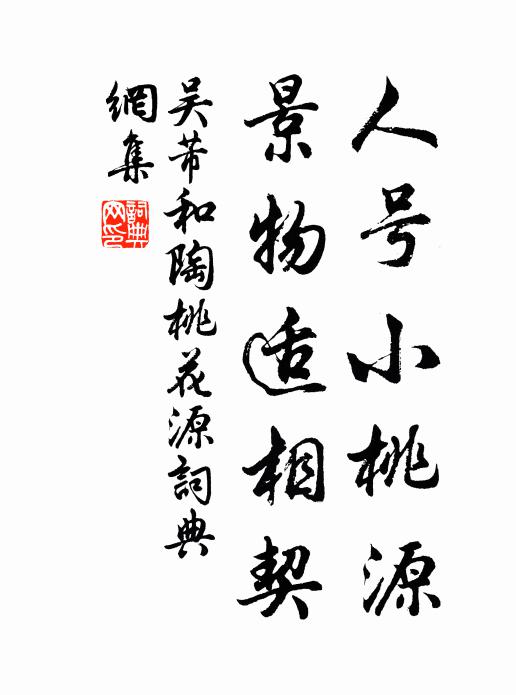 人号小桃源
景物适相契
吴芾和陶桃花源詞典
網集
詞典網印